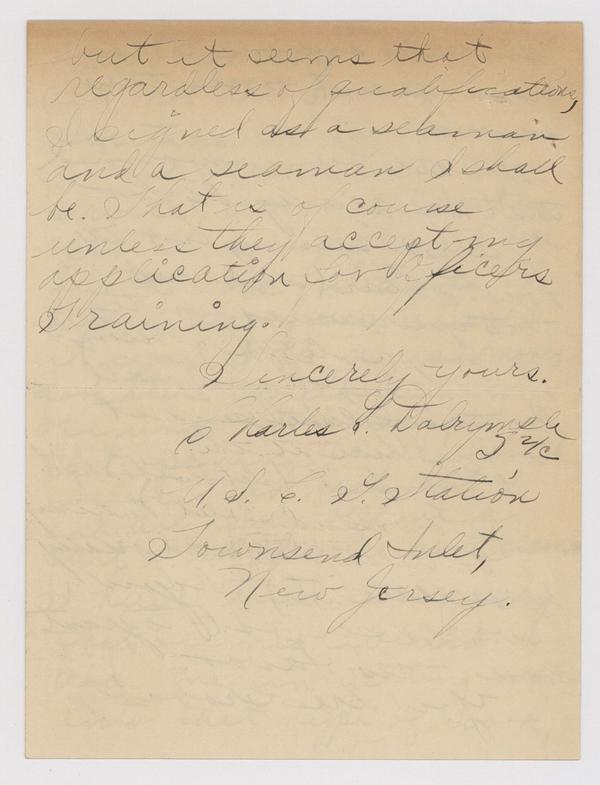 but it seems that
regardless of qualifications,
I signed as a seaman
and a seaman I shall
be. That is of course
unless they accept my
application for Officers
Training.
Sincerely yours.
Charles S. Dalrymple
S 2/c
U. S. C. G. Station
Townsend Inlet,
New Jersey.